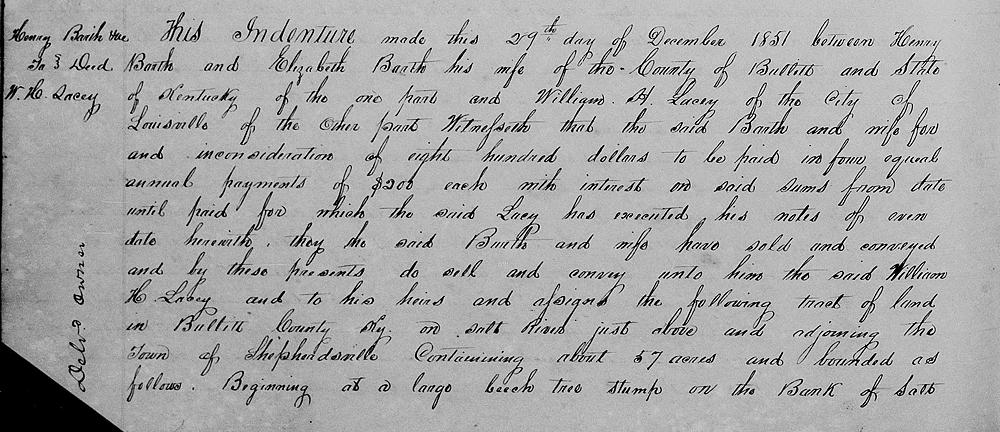 Henry Barth &ux
To } Deed
W. H. Lacey
This Indenture made this 29th day of December 1851 between Henry
Barth and Elizabeth Barth his wife of the County of Bullitt and State
of Kentucky of the one part and William. H. Lacey of the City of
Louisville of the Other part Witnesseth that the said Barth and wife for
and inconsideration of eight hundred dollars to be paid in four equeal
annual payments of $200 each with interest on said sums from date
until paid for which the said Lacy has executed his notes of even
date herewith, they the said Barth and wife have sold and conveyed
and by these presents do sell and convey unto him the said William
H Lacey and to his heirs and assigns the following tract of land
in Bullitt County Ky. on salt River just above and adjoining the
Town of Shepherdsville Containining about 57 acres and bounded as
follows. Beginning at a large beech tree stump on the Bank of Salt
Deld. owner